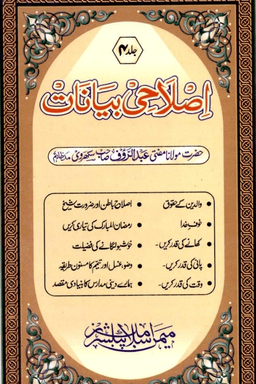 جلد ۴
اصلاحی بیانات
حضرت مولانا مفتی عبد الرؤف صاحب سکھروی مدظلہم
والدین کے حقوق
خوفِ خدا
کھانے کی قدر کریں۔
پانی کی قدر کریں۔
وقت کی قدر کریں۔
اصلاحِ باطن اور ضرورتِ شیخ
رمضان المبارک کی تیاری کریں
خوشبو لگانے کی فضیلت
وضو، غسل اور تیمم کا مسنون طریقہ
ہمارے دینی مدارس کا بنیادی مقصد
میمن اسلامک پبلشرز